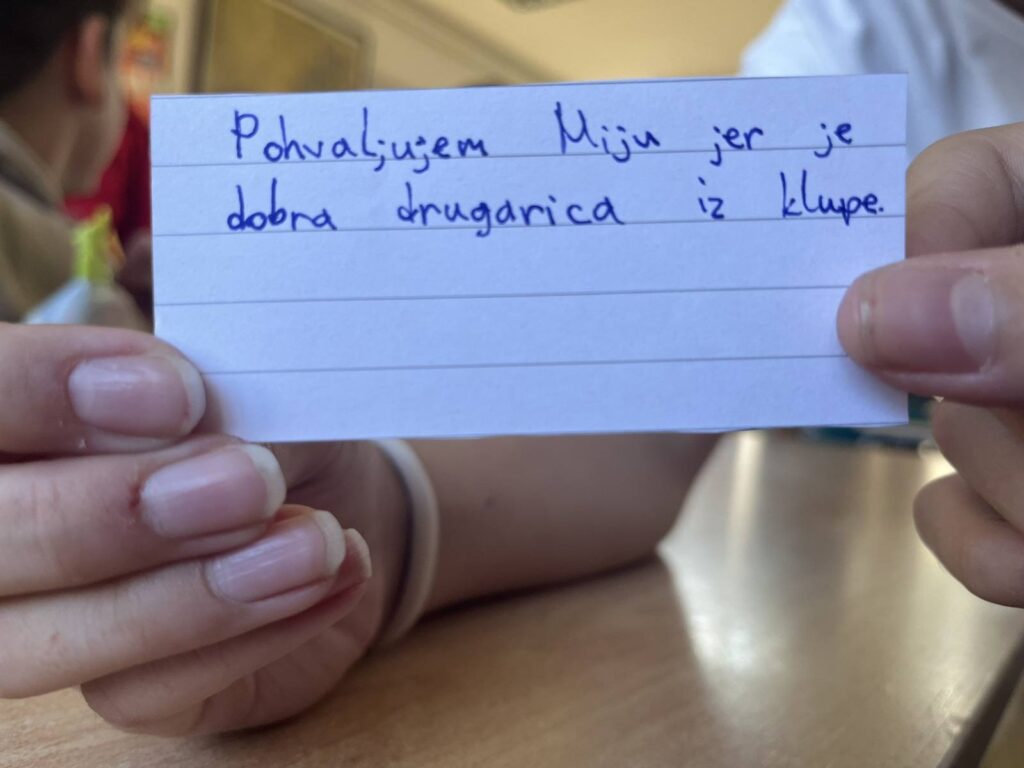 Pohvaljujem Miju jer je
dobra drugarica iz klupe.